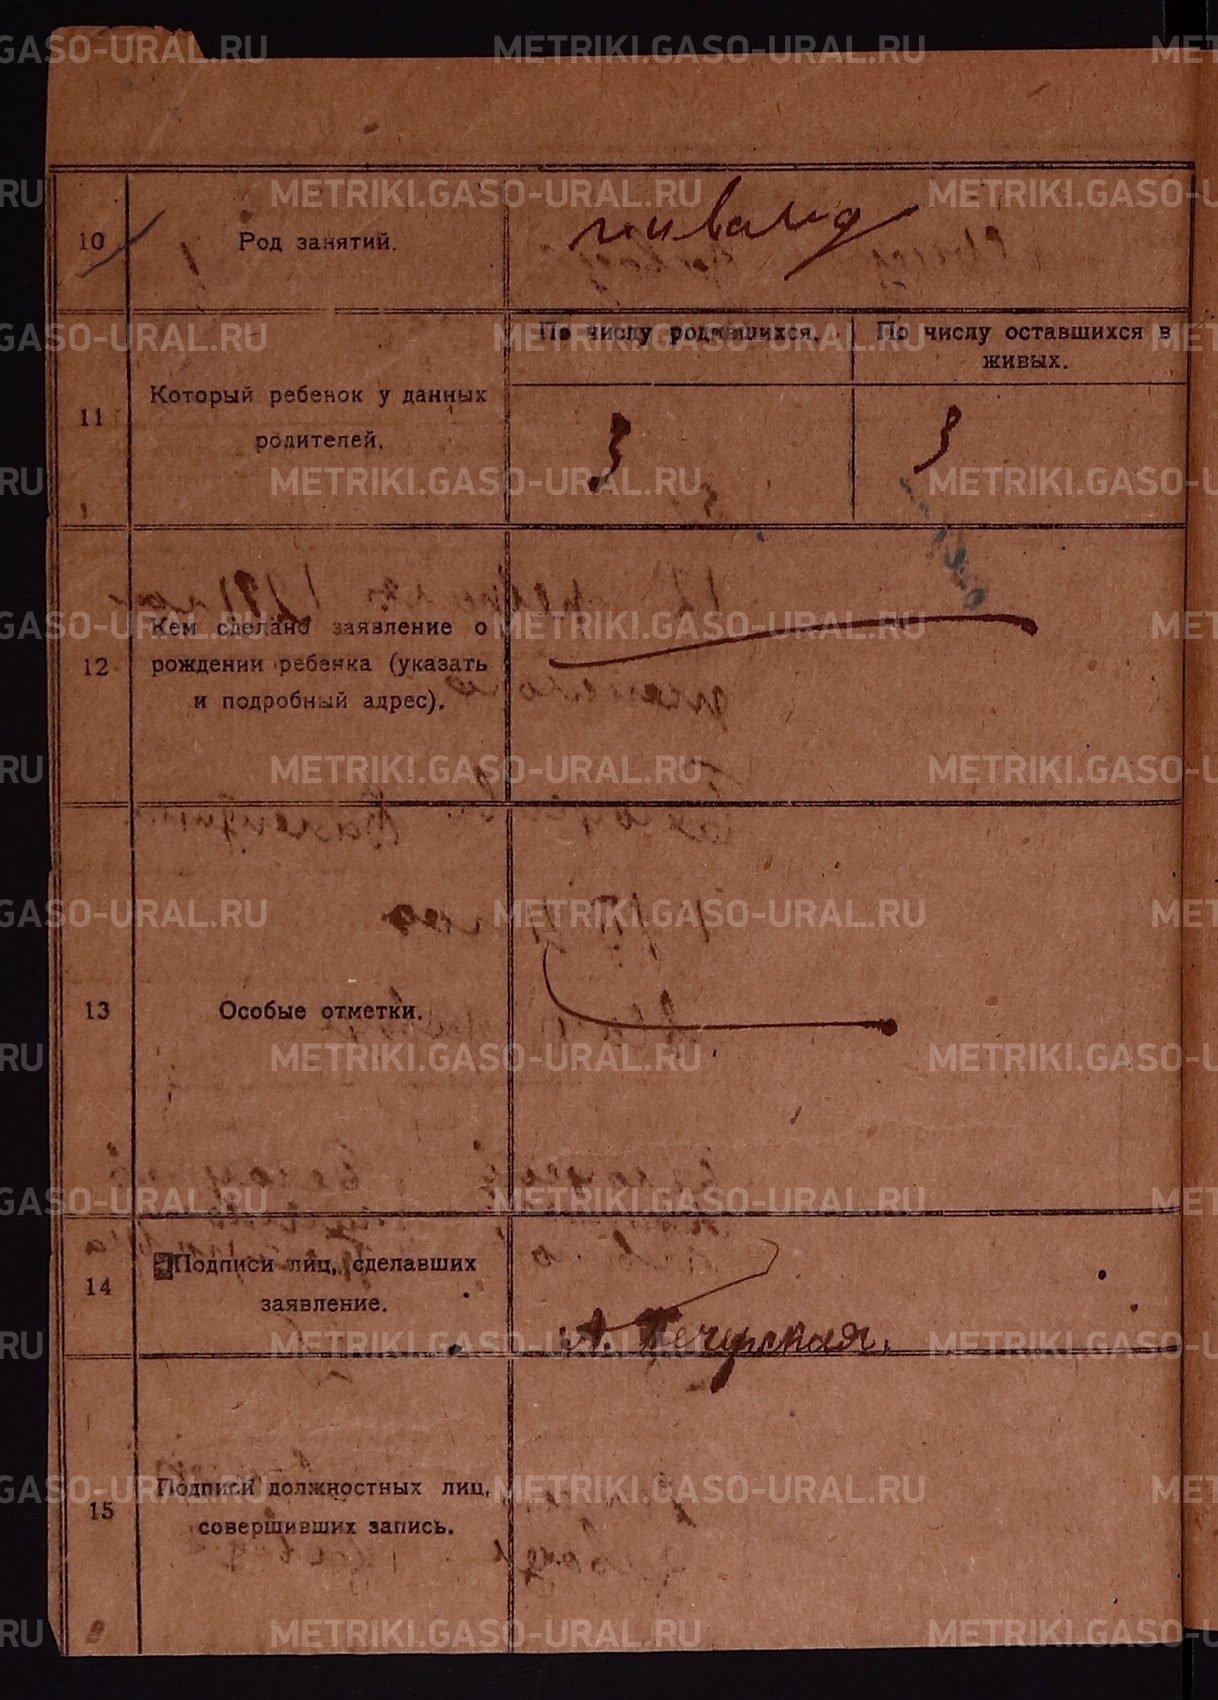 METRIKI.GASO-URAL.RU
10
Род занятий.
инвалид
11
Который ребенок у данных
родителей.
По числу родившихся.
По числу оставшихся в
живых.
3
3
12
Кем сделано заявление о
рождении ребенка (указать
и подробный адрес).
13
Особые отметки.
14
Подписи лиц, сделавших
заявление.
А. Печерская.
15
Подписи должностных лиц,
совершивших запись.